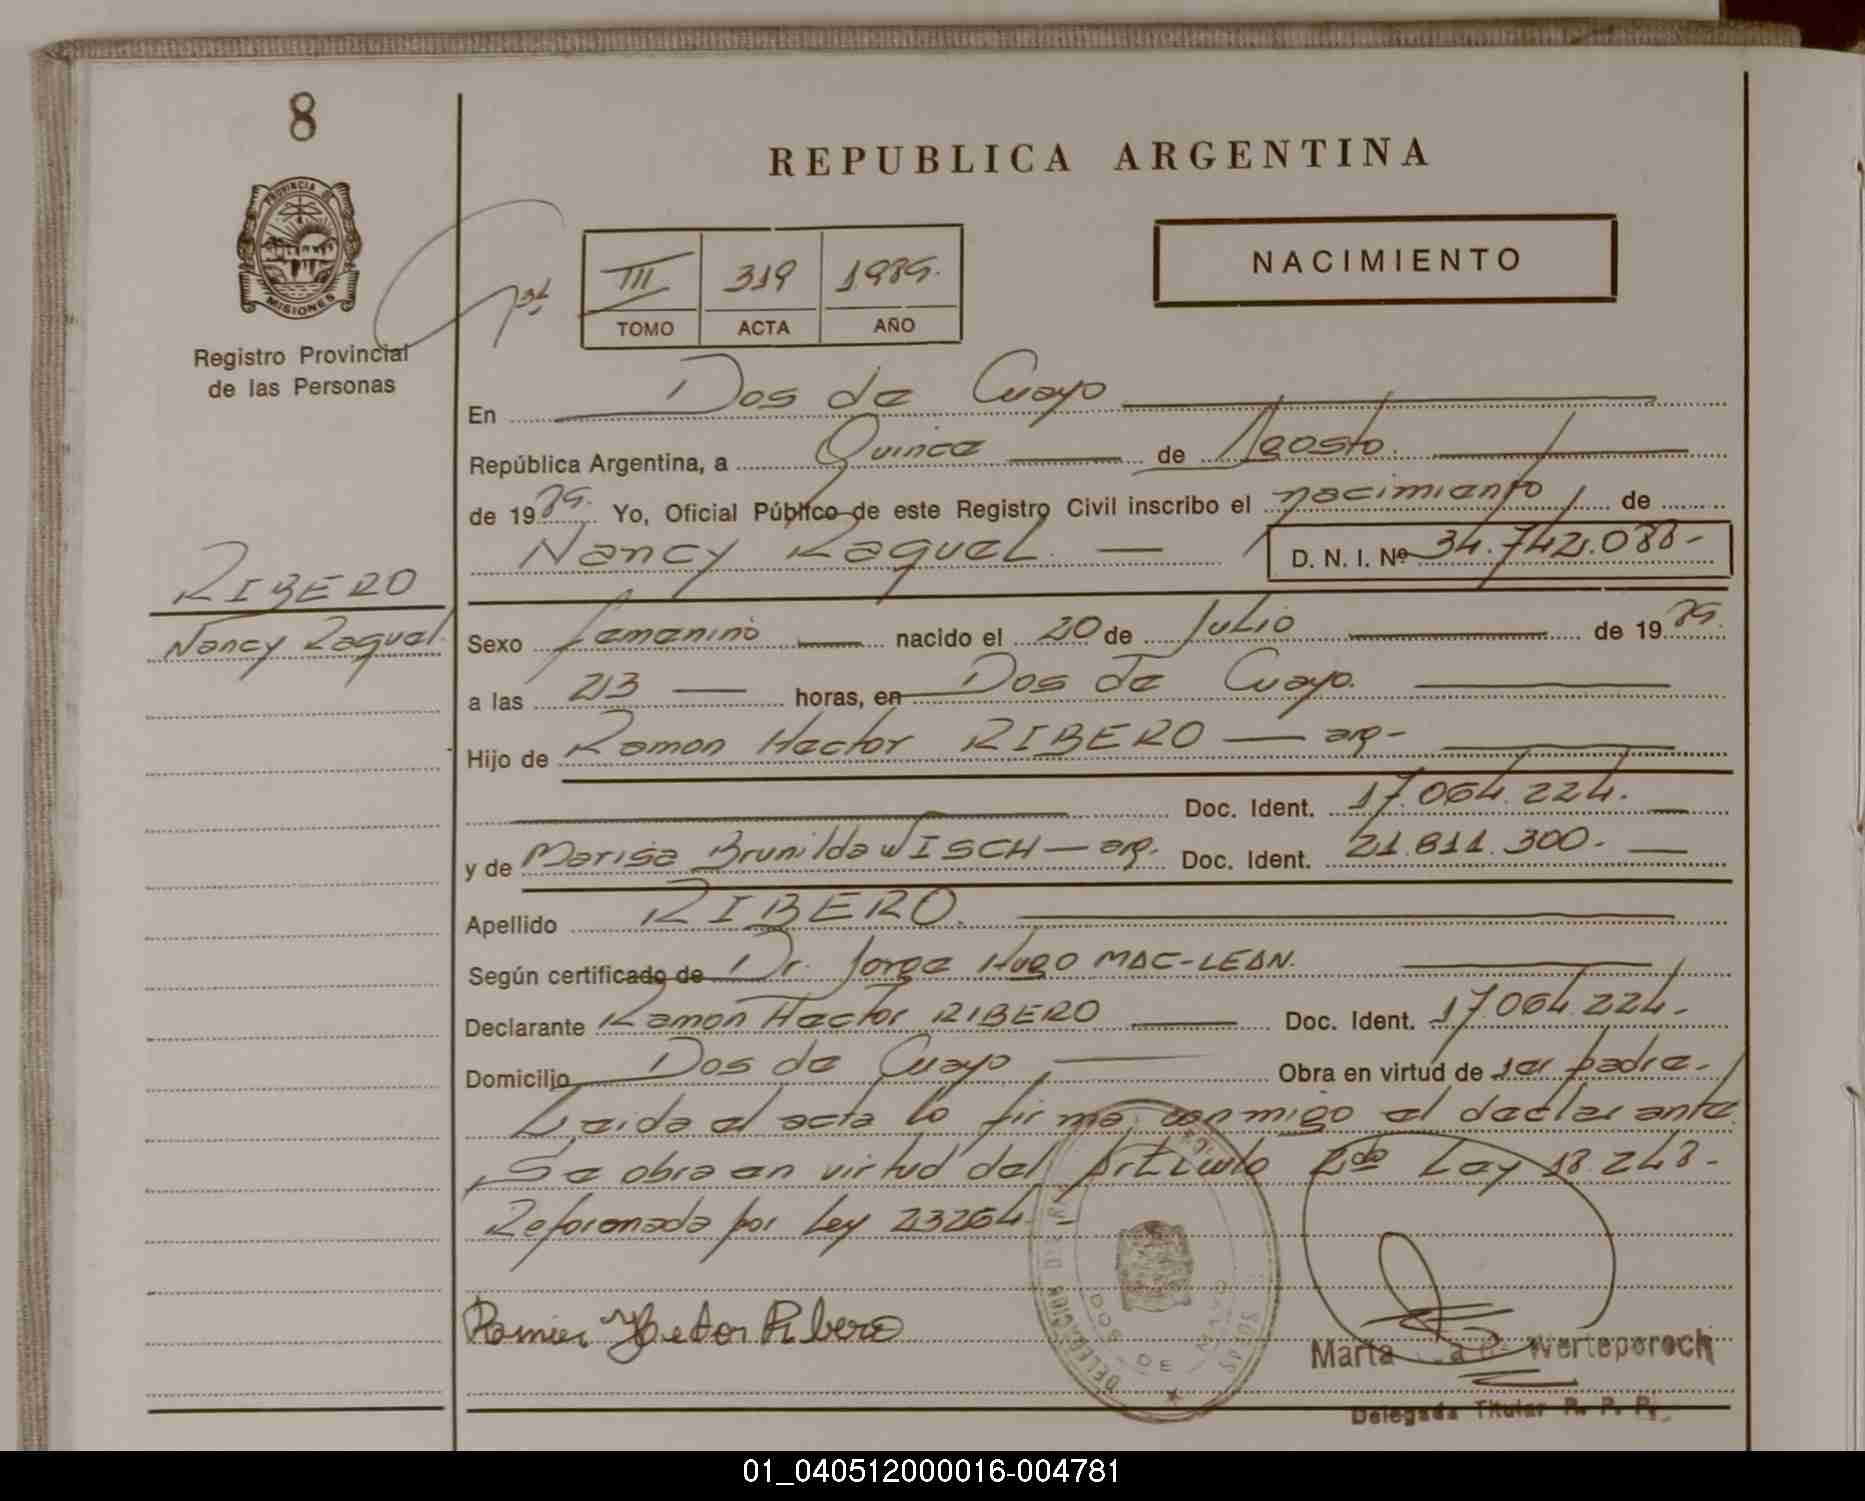 8
REPUBLICA ARGENTINA
PROVINCIA DE
MISIONES
Registro Provincial
de las Personas
III 319 1989.
TOMO ACTA AÑO
NACIMIENTO
En Dos de Mayo
República Argentina, a Quince de Agosto.
de 1989. Yo, Oficial Público de este Registro Civil inscribo el nacimiento de
Nancy Raquel. D. N. I. Nº 34.742.088-
RIBERO
Nancy Raquel.
Sexo femenino nacido el 20 de Julio de 1989.
a las 23 horas, en Dos de Mayo.
Hijo de Ramon Hector RIBERO — arg-
Doc. Ident. 17.064.224.
y de Marisa Brunilda WISCH — arg. Doc. Ident. 21.811.300.
Apellido RIBERO.
Según certificado de Dr. Jorge Hugo MAC-LEAN.
Declarante Ramon Hector RIBERO Doc. Ident. 17.064.224.
Domicilio Dos de Mayo Obra en virtud de ser padre.
Leida el acta lo firma conmigo el declarante.
Se obra en virtud del Articulo 2do Ley 18.248-
Reformada por Ley 23264.-
Hector Ribero
DOS DE MAYO
Marta Werteperoch
Delegada Titular R. P. P.
01_040512000016-004781